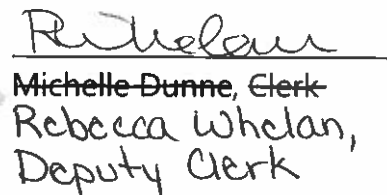 R Whelan
Michelle Dunne, Clerk
Rebecca Whelan,
Deputy Clerk